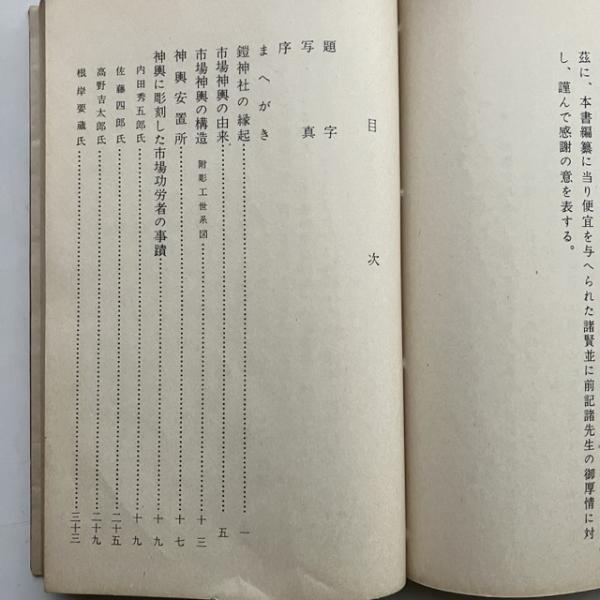 玆に、本書編纂に当り便宜を与へられた諸賢並に前記諸先生の御厚情に対
し、謹んで感謝の意を表する。
目次
題字
写真
序
まへがき
鎧神社の縁起…一
市場神輿の由来…五
市場神輿の構造 附彫工世系図…十三
神輿安置所…十七
神輿に彫刻した市場功労者の事蹟…十九
内田秀五郎氏…十九
佐藤四郎氏…二十五
高野吉太郎氏…二十九
根岸要蔵氏…三十三